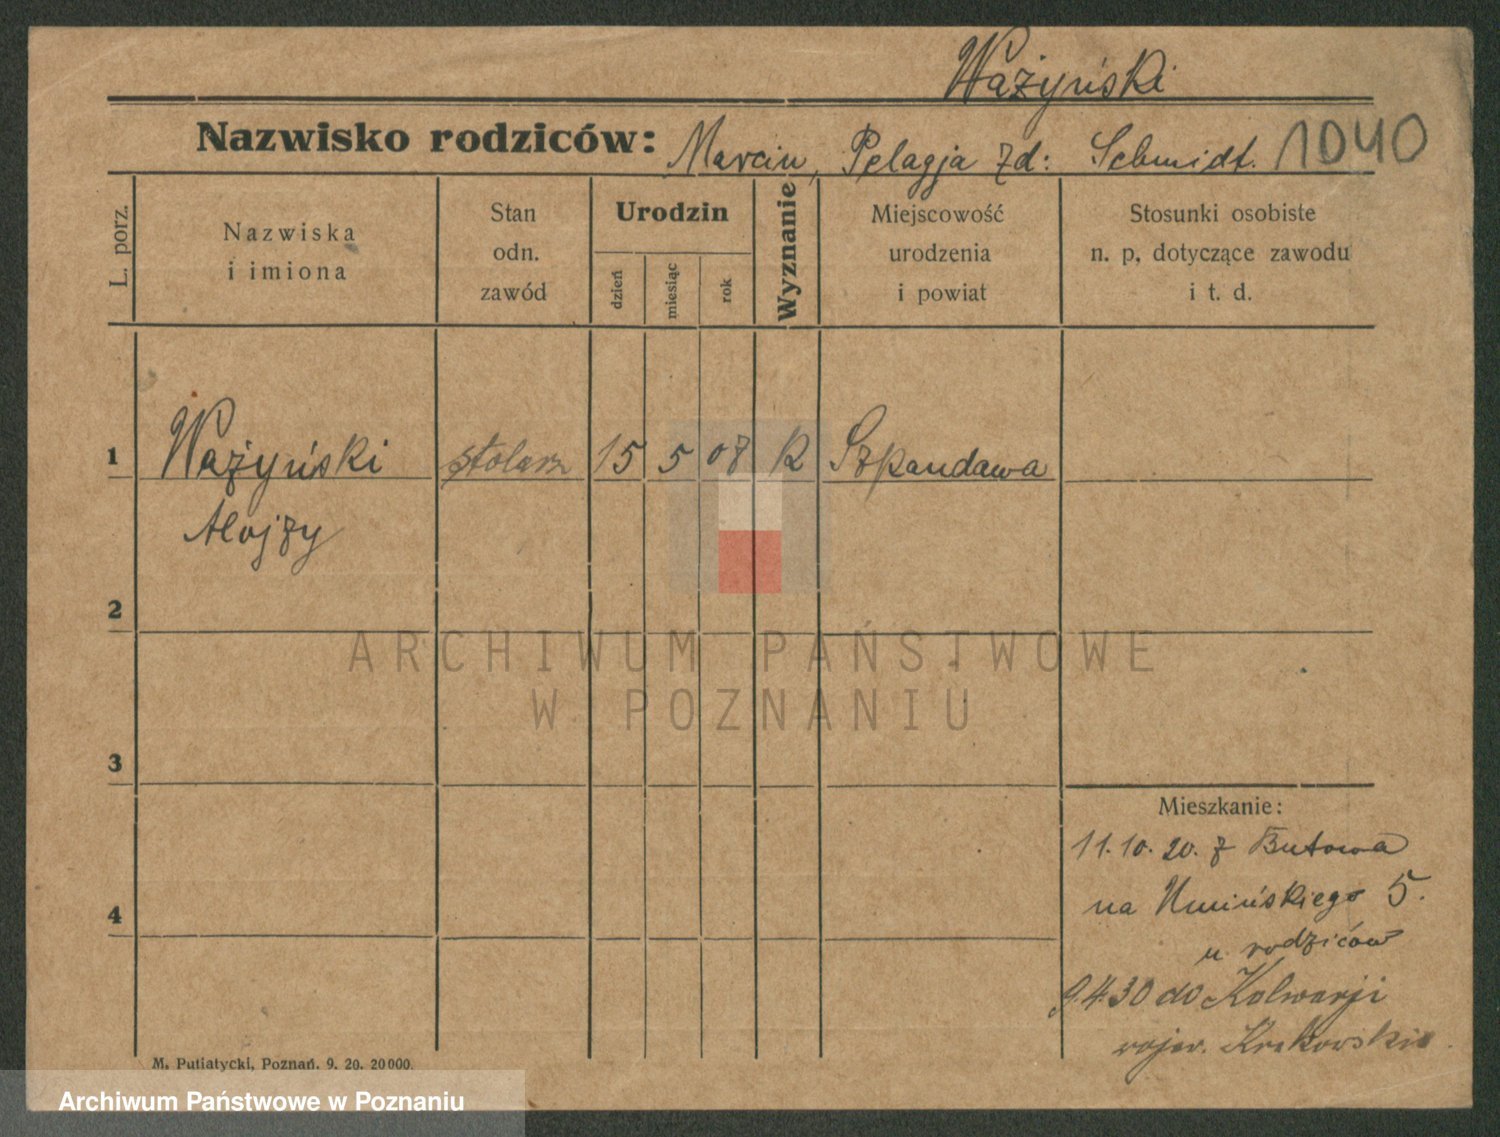 Ważyński
Nazwisko rodziców: Marcin, Pelagja zd: Schmidt. 1040
L. porz.
Nazwiska
i imiona
Stan
odn.
zawód
Urodzin
dzień
miesiąc
rok
Wyznanie
Miejscowość
urodzenia
i powiat
Stosunki osobiste
n. p. dotyczące zawodu
i t. d.
1 Ważyński stolarz 15 5 08 K Szpandawa
Alojzy
2
ARCHIWUM PAŃSTWOWE
W POZNANIU
3
Mieszkanie:
11.10.20. z Butowa
na Umińskiego 5.
4
u rodziców
9.4.30 do Kalwarji
wojew. Krakowskie.
M. Putiatycki, Poznań. 9. 20. 20000.
Archiwum Państwowe w Poznaniu